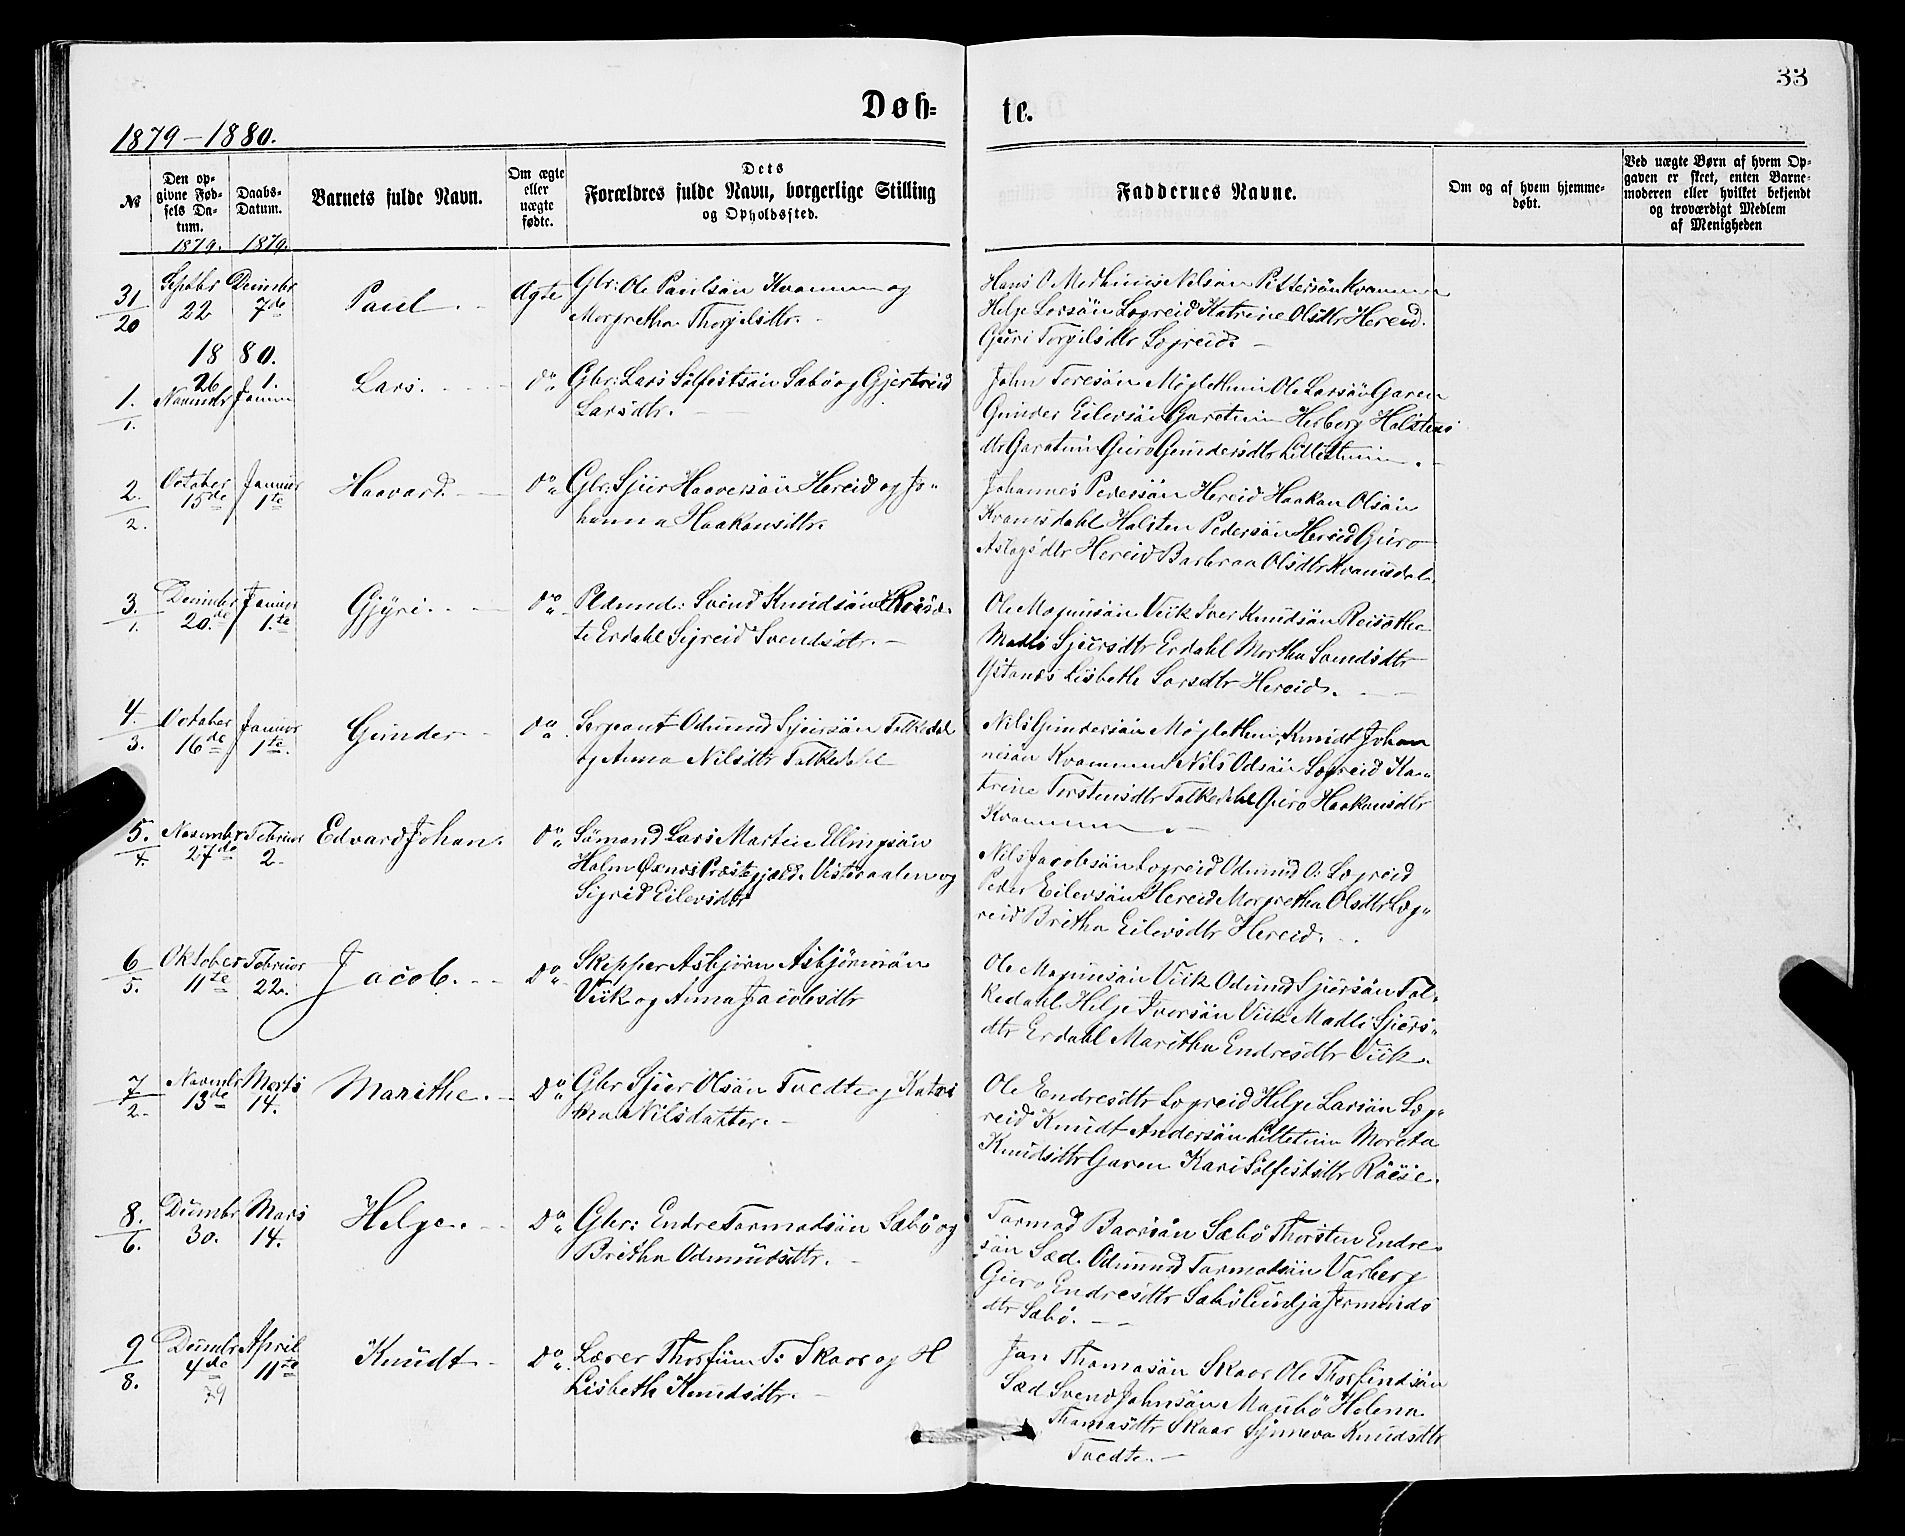 33
Døb= te.
1879-1880.
№
Den opgivne Fødsels Datum.
1879.
Daabs-Datum.
1879.
Barnets fulde Navn.
Om ægte eller uægte fødte.
Dets
Forældres fulde Navn, borgerlige Stilling
og Opholdssted.
Faddernes Navne.
Om og af hvem hjemmedøbt.
Ved uægte Børn af hvem Opgaven er skeet, enten Barnemoderen eller hvilket bekjendt og troværdigt Medlem af Menigheden
31/20 Septbr 22 Decmbr 7de Paul. Ægte
Gbr: Ole Paulsön Kvammen og
Morgretha Thorgilsdtr.
Hans O Nilsön Kvammen
Helge Larsön Legreid Katrine Olsdtr Hereid.
Guri Torgilsdtr Legreid.
1880.
1./1. 26 Novmbr 1. Januar Lars. do
Gbr: Lars Sölfestsön Sæbö og Gjertrud
Larsdtr.
John Toresön Mögletun Ole Larsön Garen
Gunder Eilevsön Garatun Herborg Halstens
dtr Garatun Guro Gundersdtr Lilletun.
2./2. October 15de Januar 1te Haavard. do
Gbr: Sjur Haaversön Hereid og Jo-
hanna Haakonsdtr.
Johannes Pedersön Hereid Haakon Olsön
Kvamsdahl Halsten Pedersön Hereid Guro
Aslagsdtr Hereid Barbraa Olsdtr Kvamsdal.
3./1. Decmbr 20.de Januar 1.te Gjyri. do
Pldmnd: Svend Knudsön
Erdahl Sigreid Svendsdtr.
Ole Magnusön Viik Iver Knudsön Reisæthe
Madli Sjursdtr Erdahl Martha Svendsdtr
Lisbeth Larsdtr Hereid.
4./3. October 16de Januar 1te Gunder do
Sergeant Odmund Sjursön Tälkedal
og Anna Nilsdtr Tälkedahl
Nils Gundersön Mögletun, Knudt Johan
nesön Kvammen Nils Odsön Legreid Ka-
trine Torstensdtr Tälkedahl Guro Haakonsdtr
Kvammen.
5./4. Novembr 27de Februar 2. Edvard Johan. do
Sömand Lars Martin Ellingsön
Holm Öxnes Præstegjæld Vesteraalen og
Sigrid Eilevsdtr
Nils Jacobsön Legreid Odmund O: Legreid
Peder Eilevsön Hereid Morgretha Olsdtr Leg-
reid Britha Eilevsdtr Hereid.
6/5. Oktober 11te Februar 22. Jacob. do
Skipper Asbjörn Asbjörnsön
Viik og Anna Jacobsdtr
Ole Magnusön Viik Odmund Sjursön Täl-
kedahl Helge Iversön Viik Madli Sjurs-
dtr Erdahl Maritha Endresdtr Viik.
7/2. Novembr 13de Marts 14. Marithe. do
Gbr Sjur Olsön Tvedt og Katri
na Nilsdatter.
Ole Endresdtr Legreid Helge Larsön Leg-
reid Knudt Andersön Lilletun Moreta
Knudsdtr Garen Kari Sölfestsdtr Röese.
8./6. Decmbr 30. Mars 14. Helge. do
Gbr: Endre Tormodsön Sæbö og
Britha Odmundsdtr.
Tormod Baarsön Sæbö Thorsten Endre-
sön Sæd. Odmund Tormodsön Varberg
Guro Endresdtr Sæbö Cundja Jermunds
dtr Sæbö.
9/8. Decmbr 4de 79 April 11te Knudt do
Lærer Thorfinn T: Skaar og H
Lisbeth Knudsdtr.
Jon Thomasön Skaar Ole Thorfindsön
Sæd Svend Johnsön Maubö Helena
Thomasdtr Skaar Synneva Knudsdtr
Tvedte.